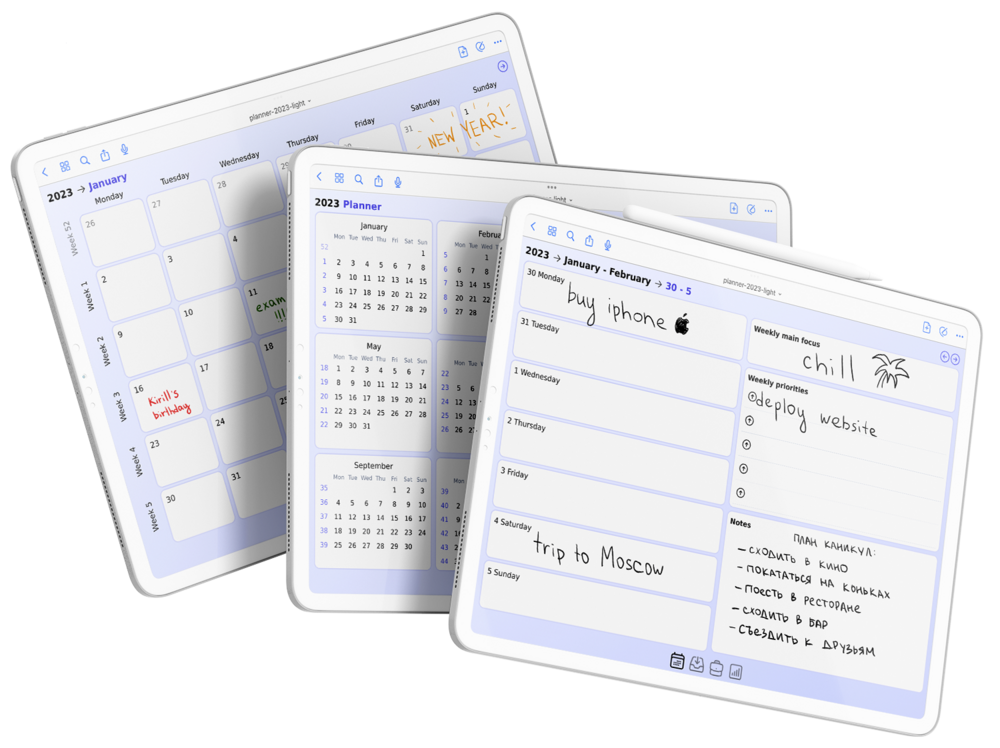 planner-2023-light
2023 → January
Monday Tuesday Wednesday Thursday Friday Saturday Sunday
Week 52 26 27 28 29 31 1
NEW YEAR!
Week 1 2 3 4
Week 2 9 10 11
exam
!!!
Week 3 16 17 18
Kirill's
birthday
Week 4 23 24 25
Week 5 30 31
2023 Planner
January
Mon Tue Wed Thu Fri Sat Sun
52 1
1 2 3 4 5 6 7 8
2 9 10 11 12 13 14 15
3 16 17 18 19 20 21 22
4 23 24 25 26 27 28 29
5 30 31
Mon Tue Wed
5 1
6 6 7 8
7 13 14 15
8 20 21 22
9 27 28
May
Mon Tue Wed Thu Fri Sat Sun
18 1 2 3 4 5 6 7
19 8 9 10 11 12 13 14
20 15 16 17 18 19 20 21
21 22 23 24 25 26 27 28
22 29 30 31
Mon Tue
22
23 5 6
24 12 13
25 19 20
26 26
September
Mon Tue Wed Thu Fri Sat Sun
35 1 2 3
36 4 5 6 7 8 9 10
37 11 12 13 14 15 16 17
38 18 19 20 21 22 23 24
39 25 26 27 28 29 30
Mon
39
40 2
41 9
42
43
44
planner-2023-light
2023 → January - February → 30 - 5
30 Monday
buy iphone
31 Tuesday
1 Wednesday
2 Thursday
3 Friday
4 Saturday
trip to Moscow
5 Sunday
Weekly main focus
chill
Weekly priorities
deploy website
Notes
ПЛАН КАНИКУЛ:
– СХОДИТЬ В КИНО
– ПОКАТАТЬСЯ НА КОНЬКАХ
– ПОЕСТЬ В РЕСТОРАНЕ
– СХОДИТЬ В БАР
– СЪЕЗДИТЬ К ДРУЗЬЯМ